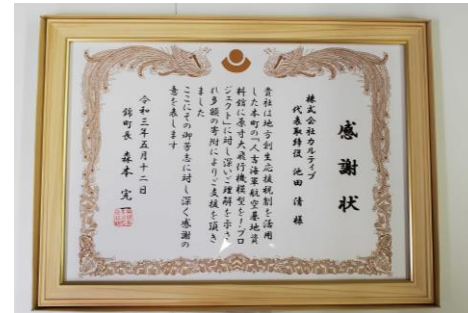 感謝状
株式会社カルティブ
代表取締役 池田 清 様
貴社は地方創生応援税制を活用
した本町の「人吉海軍航空基地資
料館に原寸大飛行機模型を!プロ
ジェクト」に対し深いご理解を示さ
れ多額の寄附によりご支援を頂き
ました
ここにその御芳志に対し深く感謝の
意を表します
令和三年五月十二日
錦町長 森本 完一